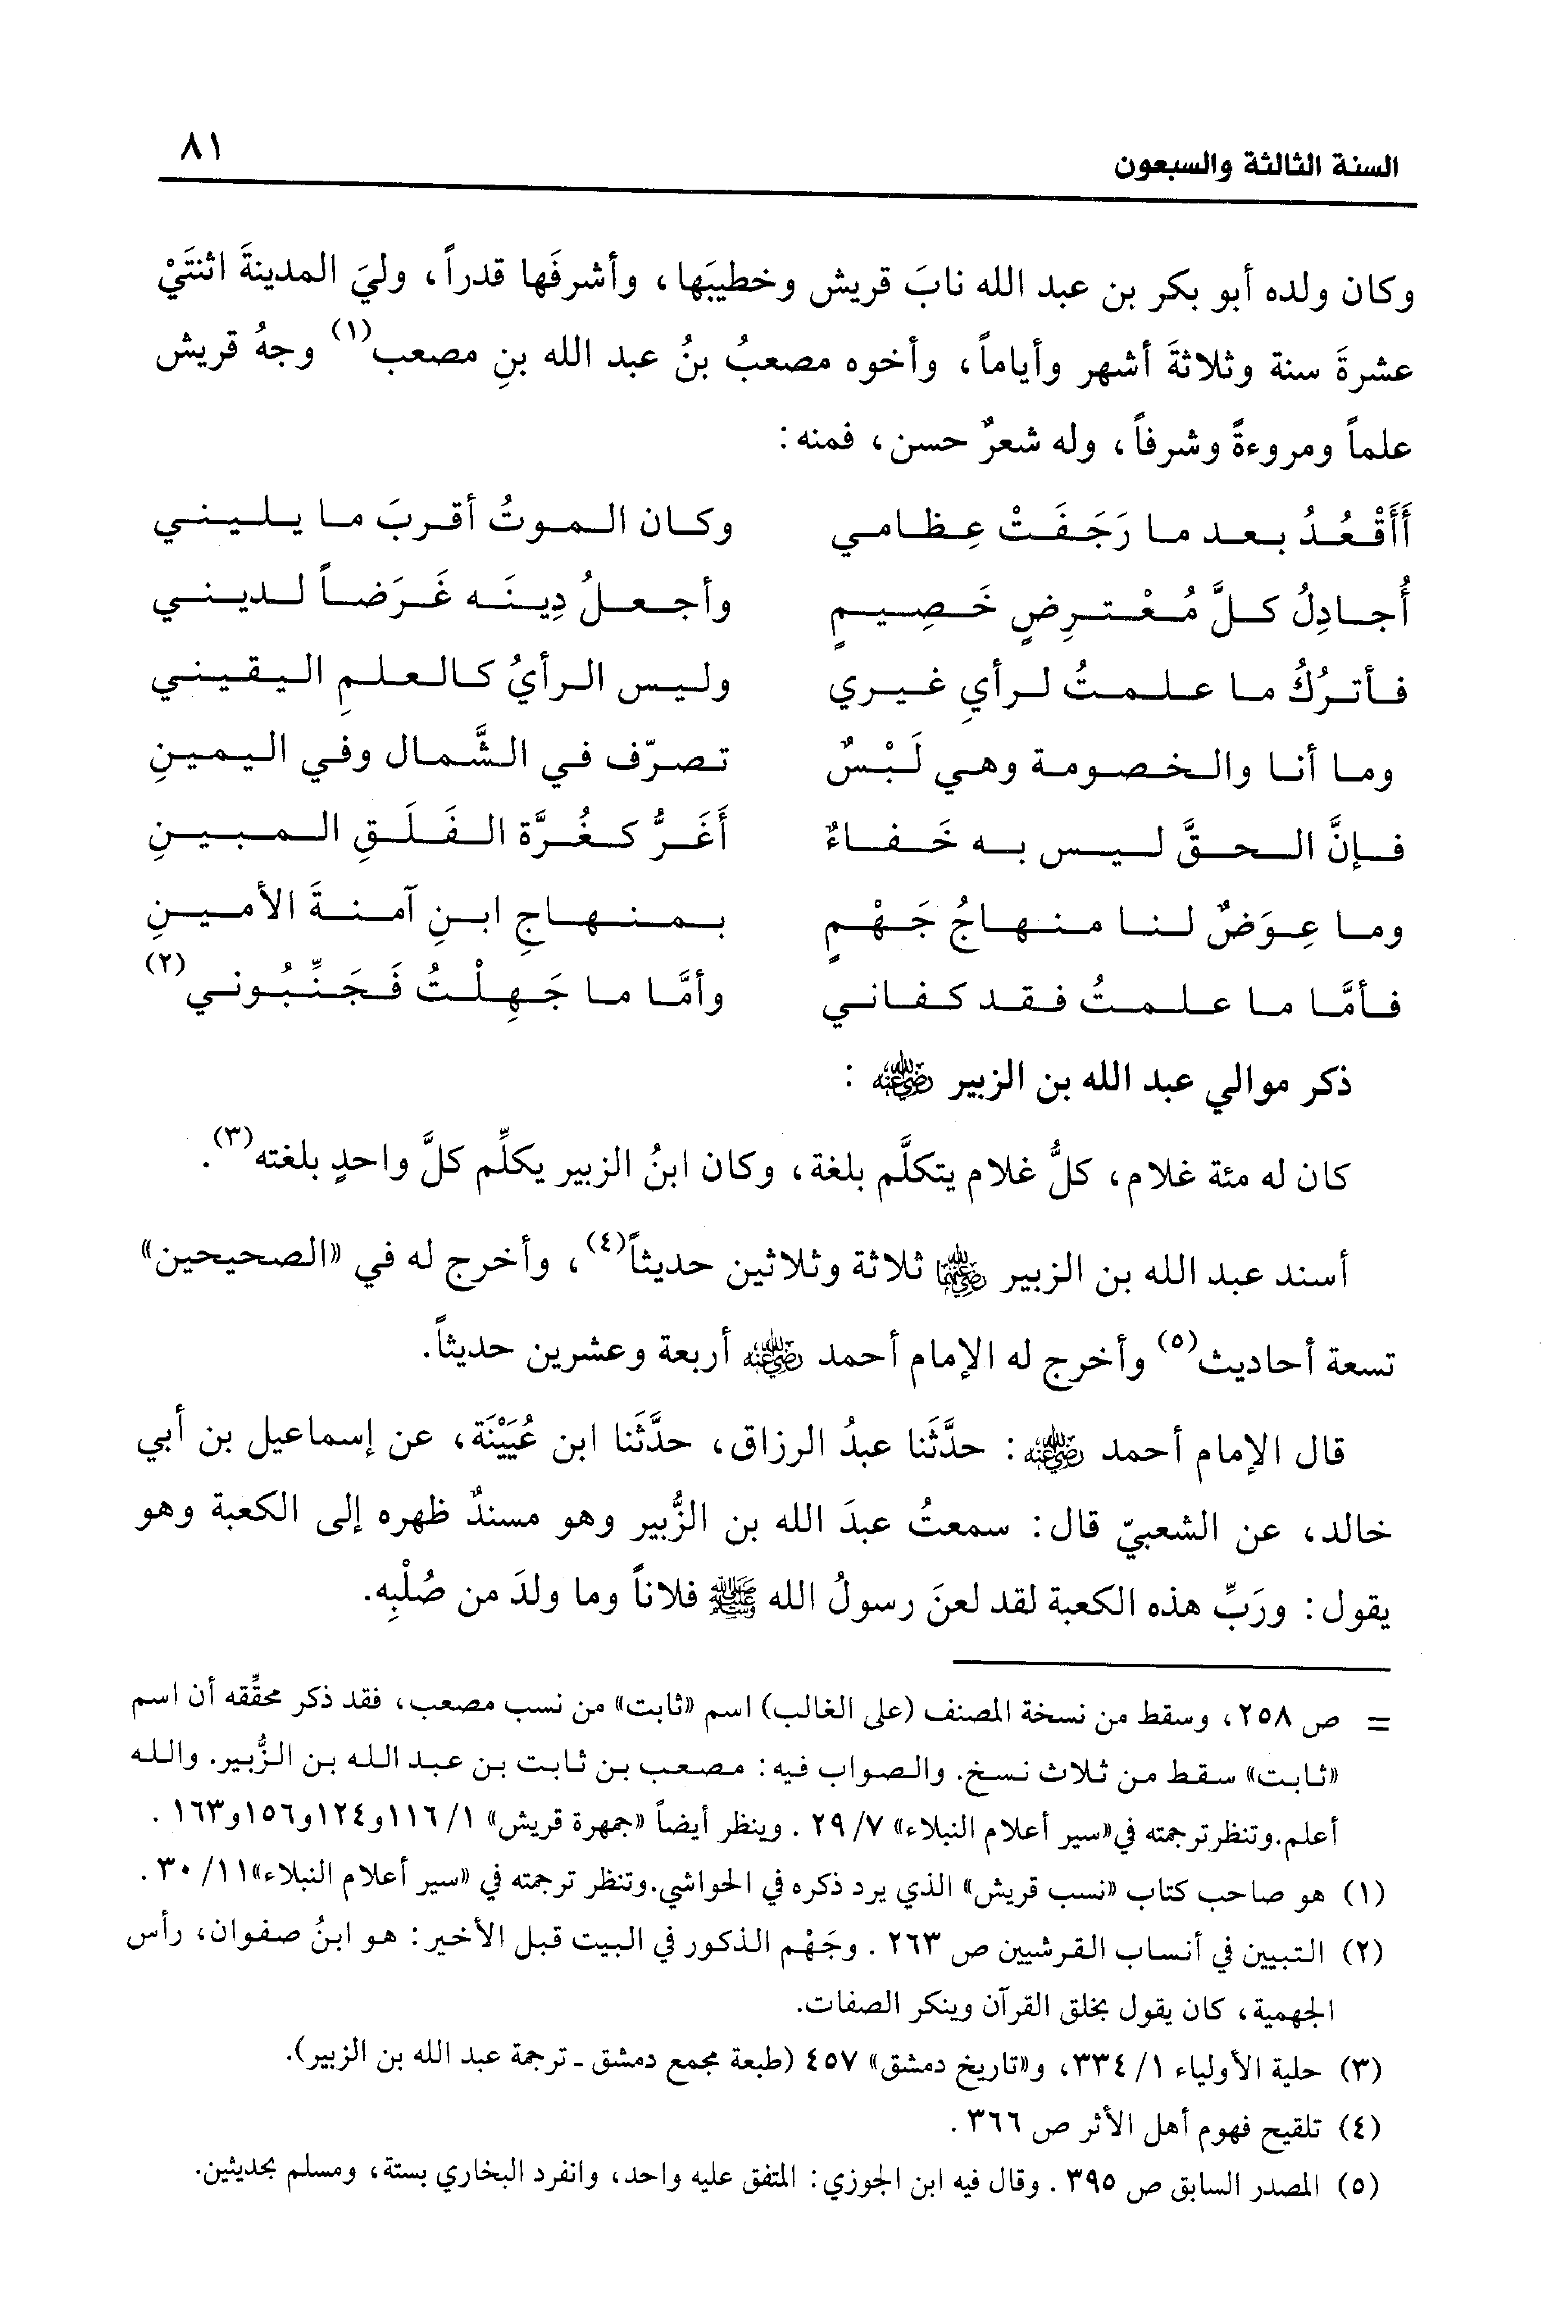 السنة الثالثة والسبعون ٨١
وكان ولده أبو بكر بن عبد الله نابَ قريش وخطيبَها، وأشرفَها قدراً، وليَ المدينةَ اثنتَيْ
عشرةَ سنة وثلاثةَ أشهر وأياماً، وأخوه مصعبُ بنُ عبد الله بنِ مصعب(١) وجهُ قريش
علماً ومروءةً وشرفاً، وله شعرٌ حسن، فمنه:
أَأَقْعُدُ بعد ما رَجَفَتْ عِظامي وكان الموتُ أقربَ ما يليني
أُجادِلُ كلَّ مُعْترِضٍ خَصِيمٍ وأجعلُ دِينَه غَرَضاً لديني
فأترُكُ ما علمتُ لرأيِ غيري وليس الرأيُ كالعلمِ اليقيني
وما أنا والخصومة وهي لَبْسٌ تصرّف في الشَّمال وفي اليمينِ
فإنَّ الحقَّ ليس به خَفاءٌ أَغَرُّ كغُرَّة الفَلَقِ المبينِ
وما عِوَضٌ لنا منهاجُ جَهْمٍ بمنهاجِ ابنِ آمنةَ الأمينِ
فأمَّا ما علمتُ فقد كفاني وأمَّا ما جَهِلْتُ فَجَنِّبُوني(٢)
ذكر موالي عبد الله بن الزبير رضي الله عنه :
كان له مئة غلام، كلُّ غلام يتكلَّم بلغة، وكان ابنُ الزبير يكلِّم كلَّ واحدٍ بلغته(٣).
أسند عبد الله بن الزبير رضي الله عنهما ثلاثة وثلاثين حديثاً(٤)، وأخرج له في «الصحيحين»
تسعة أحاديث(٥) وأخرج له الإمام أحمد رضي الله عنه أربعة وعشرين حديثاً.
قال الإمام أحمد رضي الله عنه: حدَّثَنا عبدُ الرزاق، حدَّثَنا ابن عُيَيْنَة، عن إسماعيل بن أبي
خالد، عن الشعبيّ قال: سمعتُ عبدَ الله بن الزُّبير وهو مسندٌ ظهره إلى الكعبة وهو
يقول: ورَبِّ هذه الكعبة لقد لعنَ رسولُ الله ﷺ فلاناً وما ولدَ من صُلْبِه.
= ص ٢٥٨، وسقط من نسخة المصنف (على الغالب) اسم «ثابت» من نسب مصعب، فقد ذكر محقِّقه أن اسم
«ثابت» سقط من ثلاث نسخ. والصواب فيه: مصعب بن ثابت بن عبد الله بن الزُّبير. والله
أعلم.وتنظرترجمته في«سير أعلام النبلاء» ٢٩/٧ . وينظر أيضاً «جمهرة قريش» ١١٦/١و١٢٤و١٥٦و١٦٣ .
(١) هو صاحب كتاب «نسب قريش» الذي يرد ذكره في الحواشي.وتنظر ترجمته في «سير أعلام النبلاء»٣٠/١١ .
(٢) التبيين في أنساب القرشيين ص ٢٦٣ . وجَهْم الذكور في البيت قبل الأخير: هو ابنُ صفوان، رأس
الجهمية، كان يقول بخلق القرآن وينكر الصفات.
(٣) حلية الأولياء ٣٣٤/١، و«تاريخ دمشق» ٤٥٧ (طبعة مجمع دمشق - ترجمة عبد الله بن الزبير).
(٤) تلقيح فهوم أهل الأثر ص ٣٦٦ .
(٥) المصدر السابق ص ٣٩٥ . وقال فيه ابن الجوزي: المتفق عليه واحد، وانفرد البخاري بستة، ومسلم بحديثين.